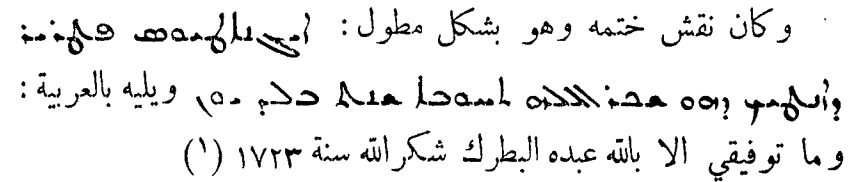 وكان نقش ختمه وهو بشكل مطول : ܐܝܓܢܐܛܝܘܣ ܦܛܪܝܪ
ܕܐܢܛܝܟ ܕܗܘ ܫܟܪܐܠܠܗ ܫܢܬ ܒܠܕ ܝܘ ويليه بالعربية :
وما توفيقي الا بالله عبده البطرك شكرالله سنة ١٧٢٣ (١)